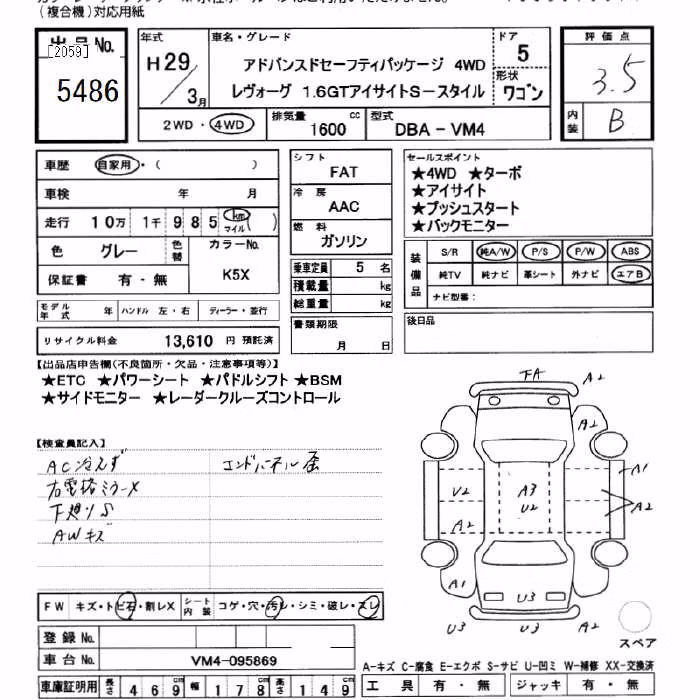 (複合機)対応用紙
出品No.
[2059]
5486
年式
H29/3月
車名・グレード
アドバンスドセーフティパッケージ 4WD
レヴォーグ 1.6GTアイサイトS-スタイル
ドア
5
形状
ワゴン
2WD・4WD
排気量 1600 cc
型式 DBA-VM4
評価点
3.5
内装 B
車歴 自家用・( )
車検 年 月
走行 10万 1千 985 km マイル ( )
色 グレー 色替
カラーNo.
K5X
保証書 有・無
モデル年式 年 ハンドル 左・右 ディーラー・並行
リサイクル料金 13,610 円 預託済
シフト
FAT
冷房
AAC
燃料
ガソリン
乗車定員 5 名
積載量 kg
総重量 kg
書類期限
月 日
セールスポイント
★4WD ★ターボ
★アイサイト
★プッシュスタート
★バックモニター
装備品
S/R 純A/W P/S P/W ABS
純TV 純ナビ 革シート 外ナビ エアB
ナビ型番:
後日品
【出品店申告欄(不良箇所・欠品・注意事項等)】
★ETC ★パワーシート ★パドルシフト ★BSM
★サイドモニター ★レーダークルーズコントロール
【検査員記入】
AC冷えず
エンドパネル歪
右電格ミラーX
下廻りS
AWキズ
FA A2
A2
A1
U2 A3 U2
A2
A2
A1
U3
U3 U3 A2
スペア
FW キズ・トビ石・割レX
シート内装 コゲ・穴・汚レ・シミ・破レ・スレ
登録No.
車台No. VM4-095869
車庫証明用 長さ 469cm 幅 178cm 高さ 149cm
A-キズ C-腐食 E-エクボ S-サビ U-凹ミ W-補修 XX-交換済
工具 有・無 ジャッキ 有・無